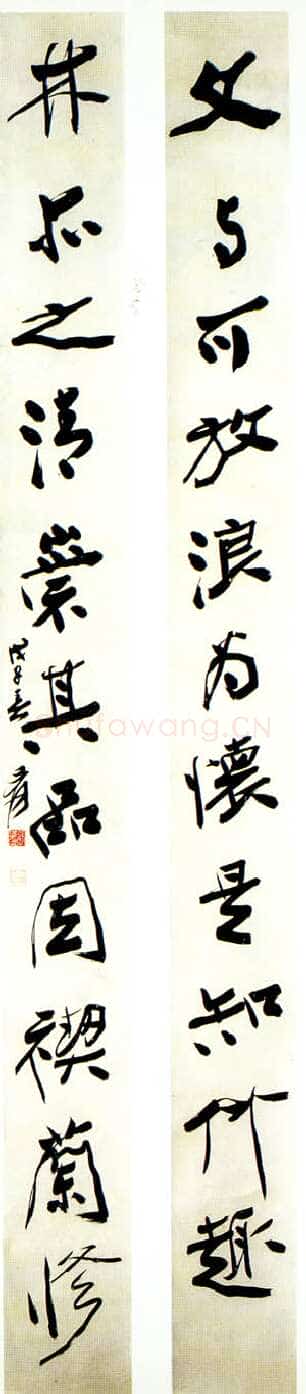 文与可放浪为懷是知竹趣
林亦之清崇其品固禊蘭修
戊子春 爰
shufawang.CN